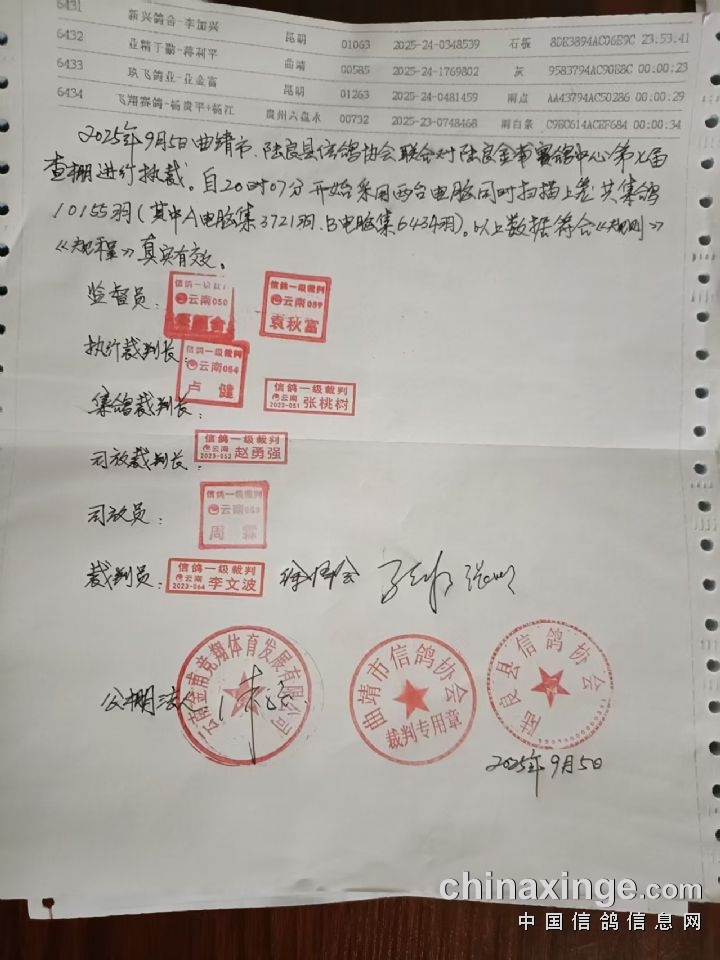 6431 新兴鸽舍-李加兴 昆明 01063 2025-24-0348539 石板 8DE3894AC06E9C 23:53:41
6432 亚精于勤-蒋利平 曲靖 00585 2025-24-1769802 灰 9583794AC90E8C 00:00:23
6433 玖飞鸽业-业金富 昆明 01263 2025-24-0481459 雨点 AA43794AC50286 00:00:29
6434 飞翔赛鸽-杨贵平+杨江 贵州六盘水 00732 2025-23-0748468 雨白条 C9EC614ACEF684 00:00:34
2025年9月5日曲靖市、陆良县信鸽协会联合对陆良金甫赛鸽中心第七届
查棚进行执裁。自20时07分开始采用两台电脑同时扫描上差共集鸽
10155羽(其中A电脑集3721羽、B电脑集6434羽)。以上数据符合《规则》
《规程》真实有效。
监督员: 信鸽一级裁判 云南050 信鸽一级裁判 云南059 袁秋富
执行裁判长: 信鸽一级裁判 云南054 卢健
集鸽裁判长: 信鸽一级裁判 云南 2023-051 张桃树
司放裁判长: 信鸽一级裁判 云南 2023-052 赵勇强
司放员: 信鸽一级裁判 云南053 周霖
裁判员: 信鸽一级裁判 云南 2023-064 李文波
云南金甫竞翔体育发展有限公司
曲靖市信鸽协会
裁判专用章
陆良县信鸽协会
公棚法人:
2025年9月5日
chinaxinge.com
中国信鸽信息网